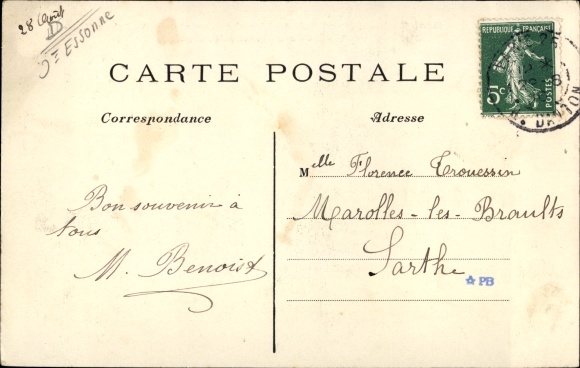 28 Août
D
Sne ESSONNE
CARTE POSTALE
RÉPUBLIQUE FRANÇAISE
5c
POSTES
DANTON
Correspondance
Adresse
Mlle Florence Trouessin
Marolles-les-Braults
Sarthe
Bon souvenir à
tous
M. Benoist
PB